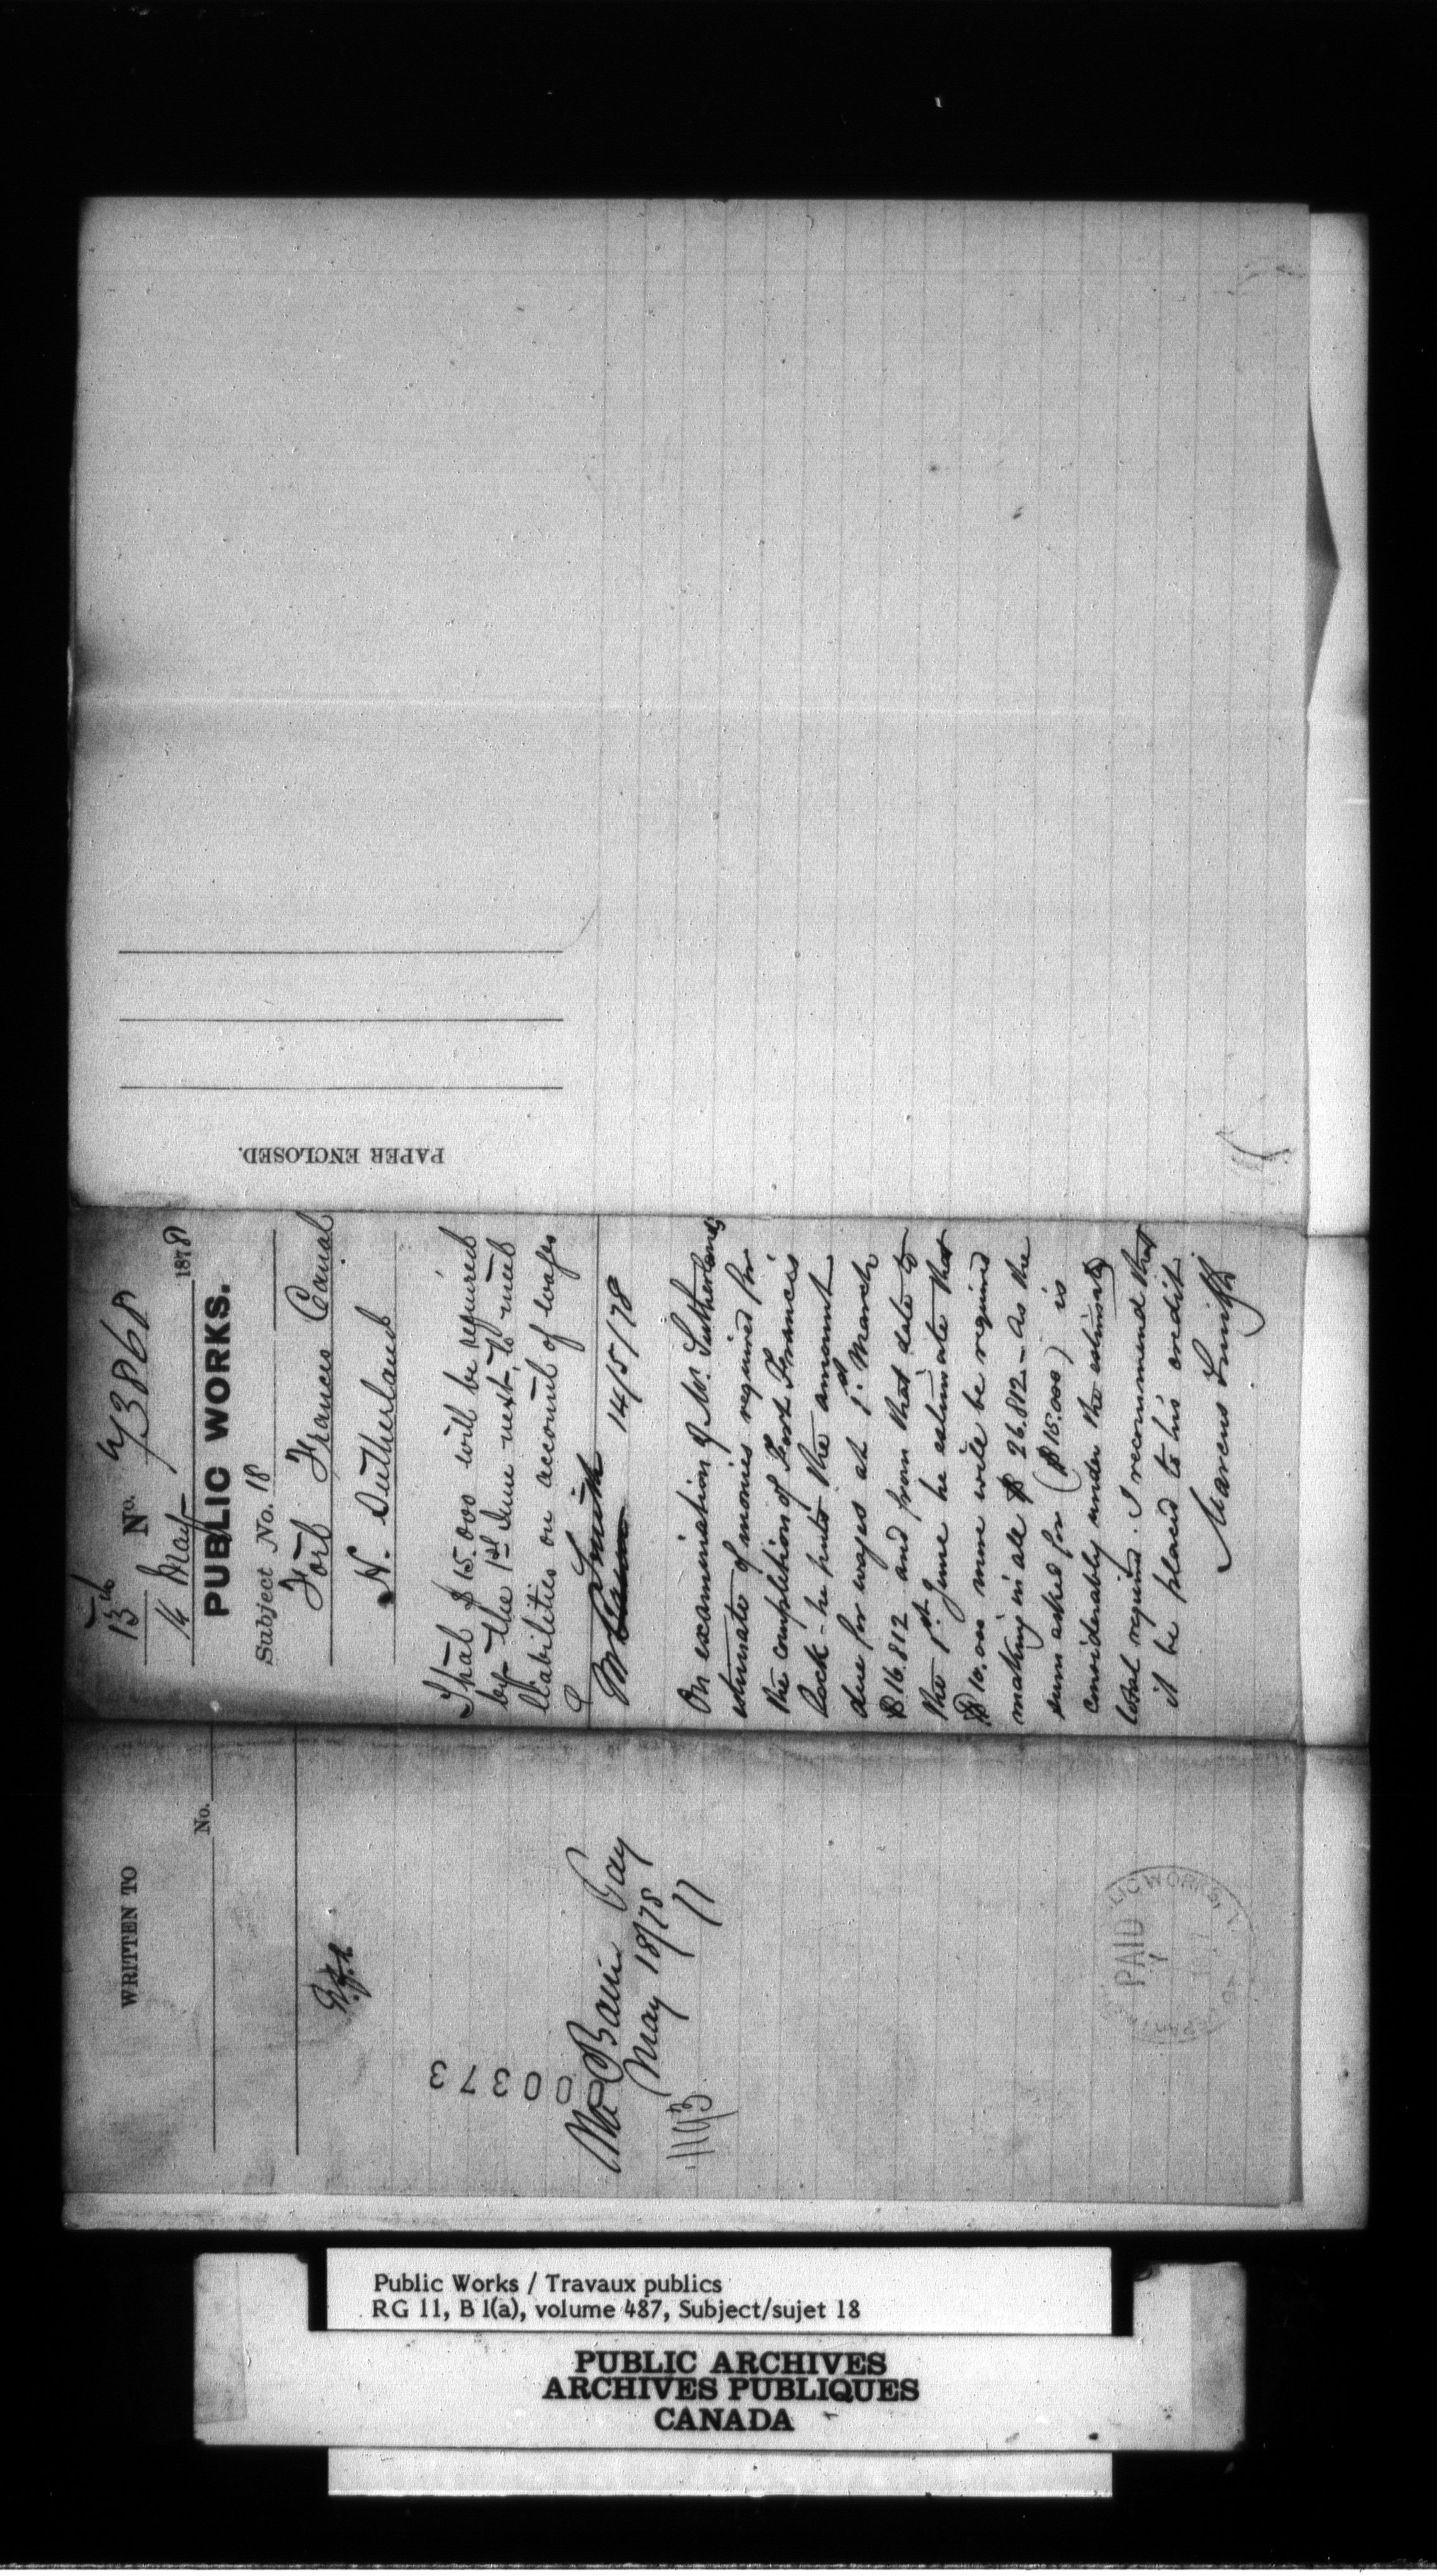 WRITTEN TO
No.
00373
Mr Bain Pay
May 18/78
PAID
13th No. 73868
14 May 1878
PUBLIC WORKS.
Subject No. 18
Fort Frances Canal
H. Sutherland
That $15.000 will be required
by the 1st June next, to meet
liabilities on account of wages
&
M Smith 14/5/78
On examination of Mr. Sutherlands
estimate of monies required for
the completion of Fort Frances
Lock - he puts the amount
due for wages at 1st March
$16.812 and from that date to
the 1st June he estimate that
$10.000 more will be required
making in all $26.812 - As the
sum asked for ($15.000) is
considerably under the estimated
total required. I recommend that
it be placed to his credit.
Marcus Smith
PAPER ENCLOSED.
Public Works / Travaux publics
RG 11, B 1(a), volume 487, Subject/sujet 18
PUBLIC ARCHIVES
ARCHIVES PUBLIQUES
CANADA